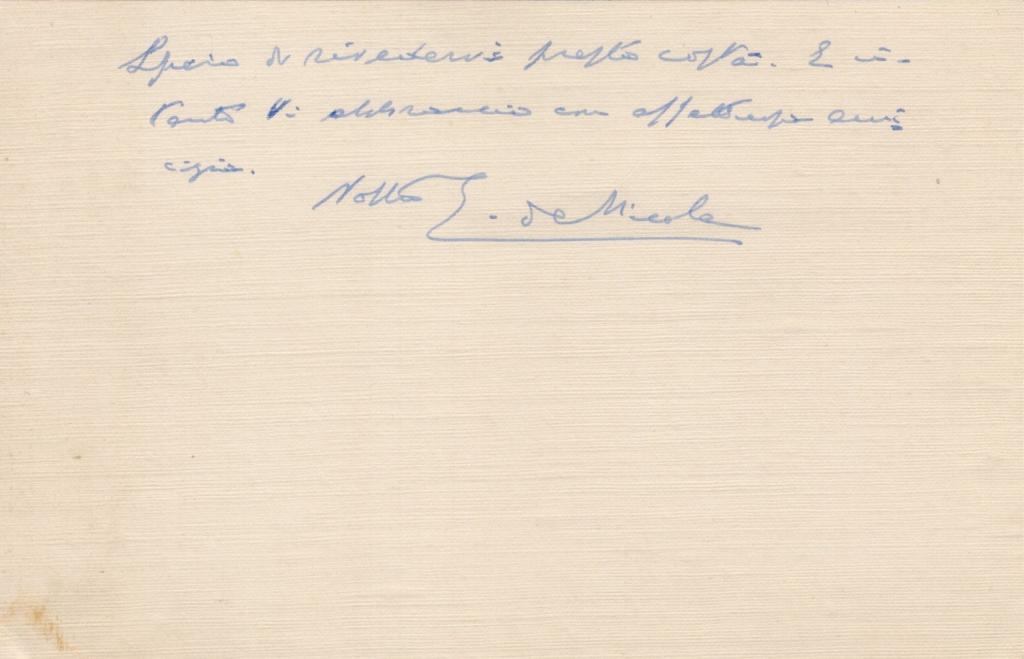 Spero di rivedervi presto costà. E in-
tanto Vi abbraccio con affettuosa ami-
cizia.
Vostro E. de Nicola